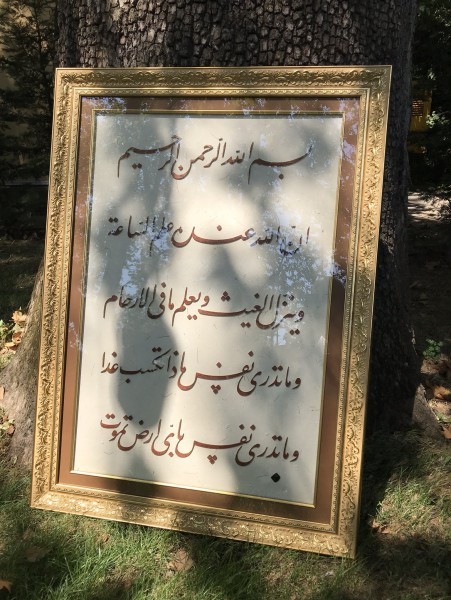 بسم الله الرحمن الرحیم
ان الله عنده علم الساعة
وینزل الغیث ویعلم مافی الارحام
وماتدری نفس ماذاتکسب غدا
وماتدری نفس بای ارض تموت